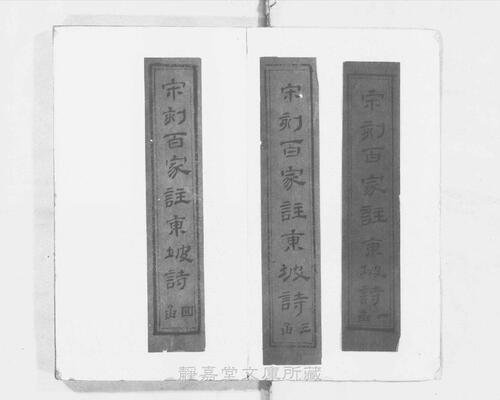 宋刻百家註東坡詩 一函
宋刻百家註東坡詩 三函
宋刻百家註東坡詩 四函
靜嘉堂文庫所藏